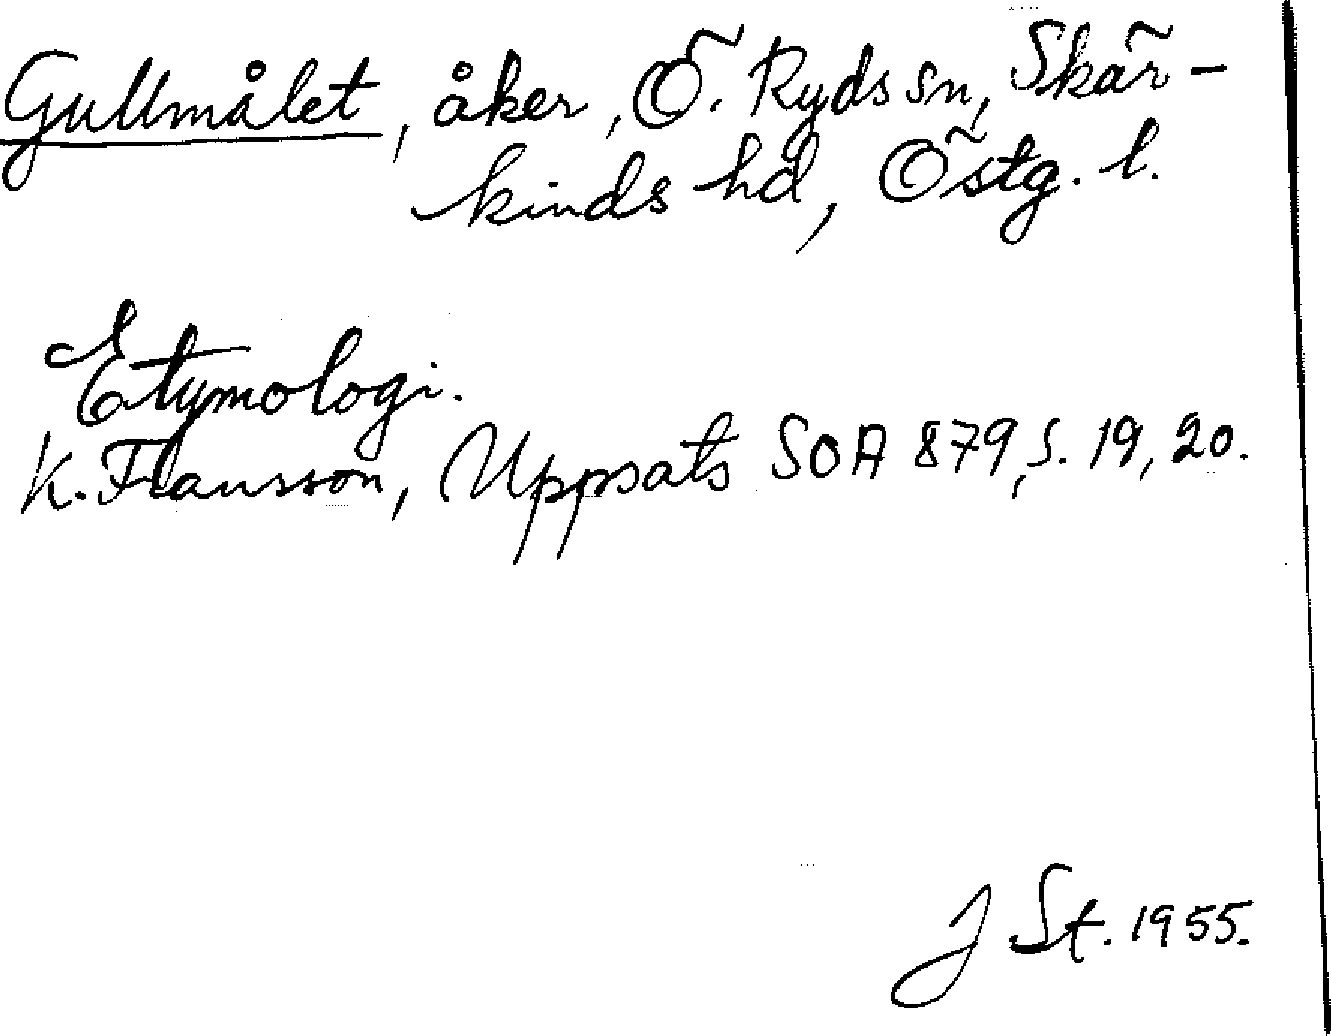 Gullmålet, åker, Ö. Ryds sn, Skär-
kinds hd, Östg. l.
Etymologi.
K. Fransson, Uppsats SOA 879, s. 19, 20.
J St. 1955.